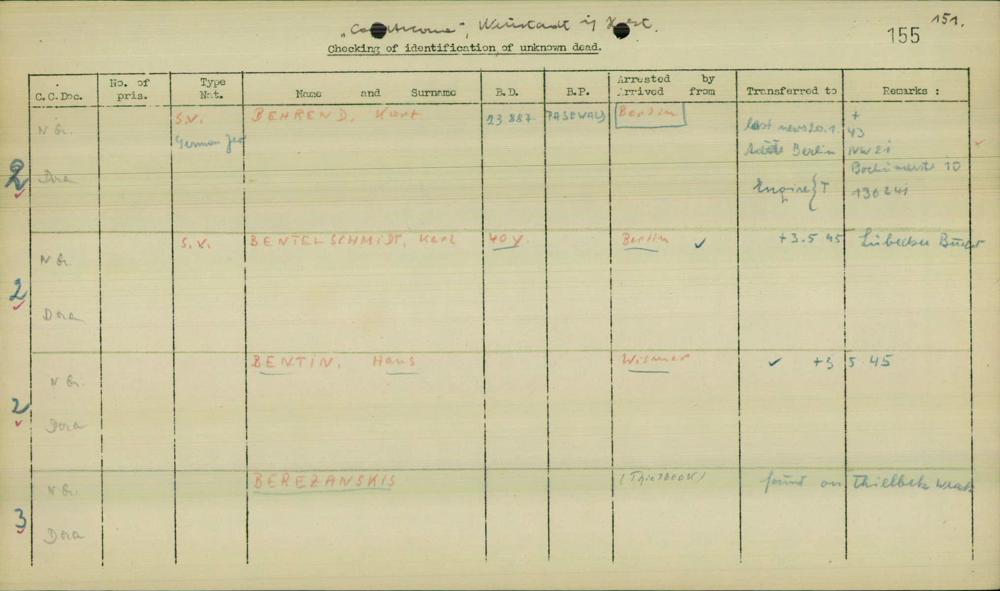 151.
155
", Neustadt i/ Holst.
Checking of identification of unknown dead.
C.C.Doc. No. of pris. Type Nat. Name and Surname B.D. B.P. Arrested by Arrived from Transferred to Remarks :
2 N Gr. Dora S.V. German Jew BEHREND, Kurt 23 887 PASEWALK Berlin last news 20.1. + 43
Berlin NW 21
Bochumerstr 10
T 190241
2 N Gr. Dora S.V. BENTELSCHMIDT, Karl 40 y. Berlin ✓ +3.5 45 Lübecker Bucht
2 N Gr. Dora BENTIN, Hans Wismar ✓ +3 5.45
3 N Gr. Dora BEREZANSKIS (Thielbeck) found on Thielbek wreck